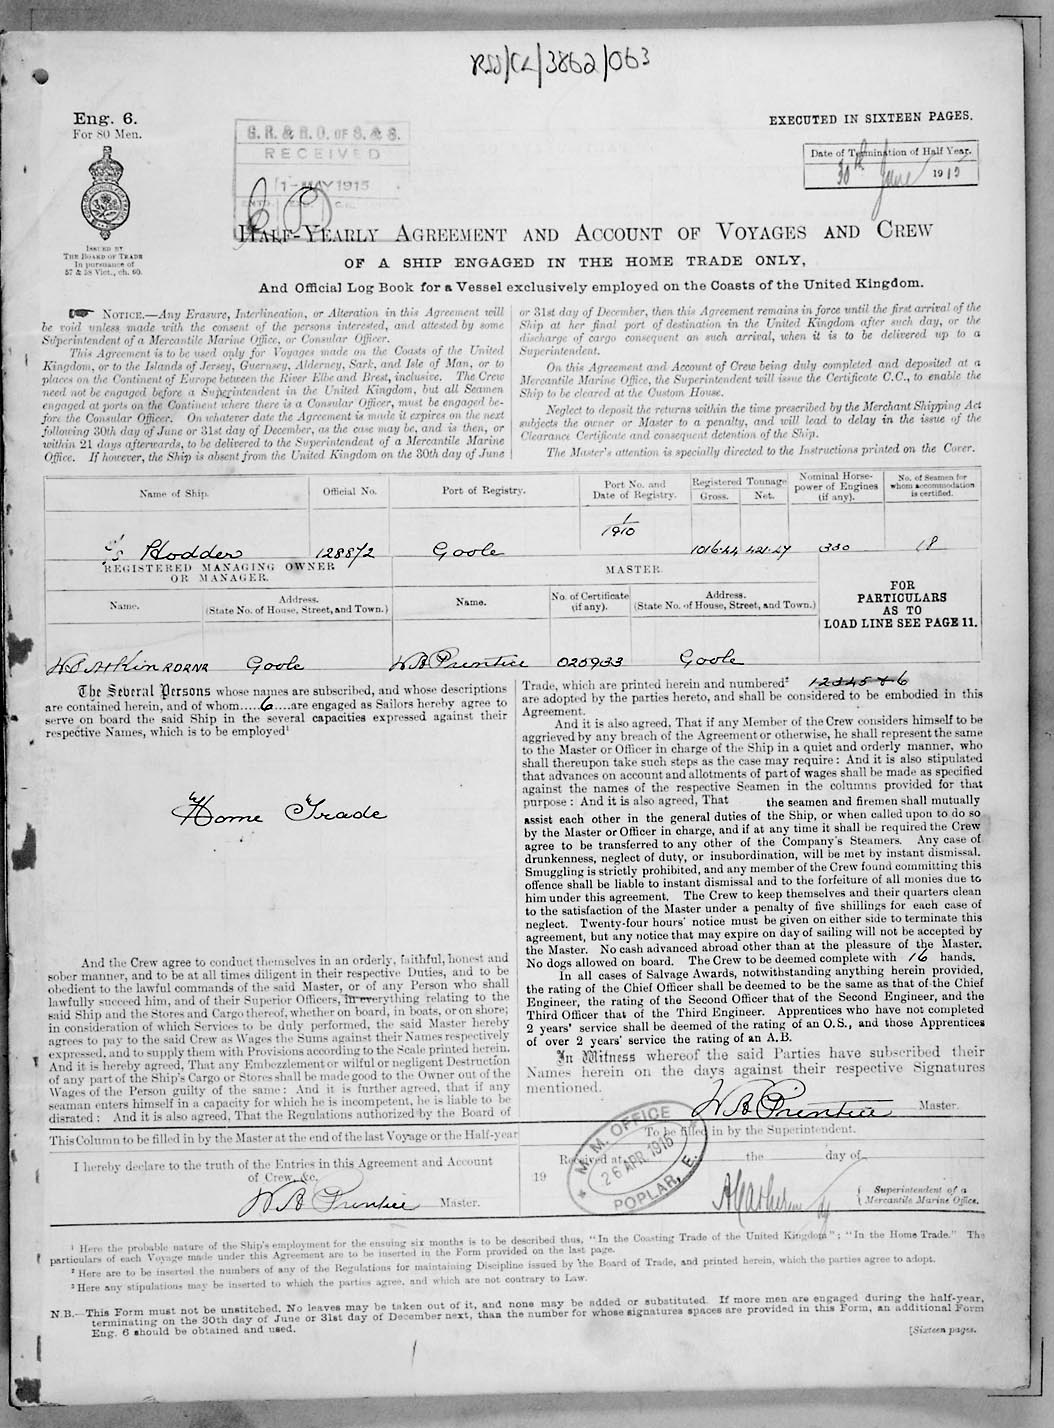 RSS/CL/3862/063
Eng. 6.
For 80 Men.
EXECUTED IN SIXTEEN PAGES.
G. R. & R. O. OF S. & S.
RECEIVED
1 - MAY 1915
Date of Termination of Half Year.
30th June 1915
ISSUED BY
THE BOARD OF TRADE
In pursuance of
57 & 58 Vict., ch. 60.
HALF-YEARLY AGREEMENT AND ACCOUNT OF VOYAGES AND CREW
OF A SHIP ENGAGED IN THE HOME TRADE ONLY,
And Official Log Book for a Vessel exclusively employed on the Coasts of the United Kingdom.
NOTICE.—Any Erasure, Interlineation, or Alteration in this Agreement will
be void unless made with the consent of the persons interested, and attested by some
Superintendent of a Mercantile Marine Office, or Consular Officer.
This Agreement is to be used only for Voyages made on the Coasts of the United
Kingdom, or to the Islands of Jersey, Guernsey, Alderney, Sark, and Isle of Man, or to
places on the Continent of Europe between the River Elbe and Brest, inclusive. The Crew
need not be engaged before a Superintendent in the United Kingdom, but all Seamen
engaged at ports on the Continent where there is a Consular Officer, must be engaged be-
fore the Consular Officer. On whatever date the Agreement is made it expires on the next
following 30th day of June or 31st day of December, as the case may be, and is then, or
within 21 days afterwards, to be delivered to the Superintendent of a Mercantile Marine
Office. If however, the Ship is absent from the United Kingdom on the 30th day of June
or 31st day of December, then this Agreement remains in force until the first arrival of the
Ship at her final port of destination in the United Kingdom after such day, or the
discharge of cargo consequent on such arrival, when it is to be delivered up to a
Superintendent.
On this Agreement and Account of Crew being duly completed and deposited at a
Mercantile Marine Office, the Superintendent will issue the Certificate C.C., to enable the
Ship to be cleared at the Custom House.
Neglect to deposit the returns within the time prescribed by the Merchant Shipping Act
subjects the owner or Master to a penalty, and will lead to delay in the issue of the
Clearance Certificate and consequent detention of the Ship.
The Master's attention is specially directed to the Instructions printed on the Cover.
Name of Ship. Official No. Port of Registry. Port No. and Date of Registry. Registered Tonnage Gross. Net. Nominal Horse-power of Engines (if any). No. of Seamen for whom accommodation is certified.
1/1910
S/S Hodder 128872 Goole 1016.44 421.47 330 18
REGISTERED MANAGING OWNER
OR MANAGER.
MASTER.
FOR
PARTICULARS
AS TO
LOAD LINE SEE PAGE 11.
Name. Address. (State No. of House, Street, and Town.) Name. No. of Certificate (if any). Address. (State No. of House, Street, and Town.)
W B Atkin RDRNR Goole W B Prentice 020933 Goole
The Several Persons whose names are subscribed, and whose descriptions
are contained herein, and of whom.....6....are engaged as Sailors hereby agree to
serve on board the said Ship in the several capacities expressed against their
respective Names, which is to be employed¹
Home Trade
And the Crew agree to conduct themselves in an orderly, faithful, honest and
sober manner, and to be at all times diligent in their respective Duties, and to be
obedient to the lawful commands of the said Master, or of any Person who shall
lawfully succeed him, and of their Superior Officers, in everything relating to the
said Ship and the Stores and Cargo thereof, whether on board, in boats, or on shore;
in consideration of which Services to be duly performed, the said Master hereby
agrees to pay to the said Crew as Wages the Sums against their Names respectively
expressed, and to supply them with Provisions according to the Scale printed herein.
And it is hereby agreed, That any Embezzlement or wilful or negligent Destruction
of any part of the Ship's Cargo or Stores shall be made good to the Owner out of the
Wages of the Person guilty of the same: And it is further agreed, that if any
seaman enters himself in a capacity for which he is incompetent, he is liable to be
disrated: And it is also agreed, That the Regulations authorized by the Board of
Trade, which are printed herein and numbered² 1 2 3 4 5 & 6
are adopted by the parties hereto, and shall be considered to be embodied in this
Agreement.
And it is also agreed, That if any Member of the Crew considers himself to be
aggrieved by any breach of the Agreement or otherwise, he shall represent the same
to the Master or Officer in charge of the Ship in a quiet and orderly manner, who
shall thereupon take such steps as the case may require: And it is also stipulated
that advances on account and allotments of part of wages shall be made as specified
against the names of the respective Seamen in the columns provided for that
purpose: And it is also agreed, That the seamen and firemen shall mutually
assist each other in the general duties of the Ship, or when called upon to do so
by the Master or Officer in charge, and if at any time it shall be required the Crew
agree to be transferred to any other of the Company's Steamers. Any case of
drunkenness, neglect of duty, or insubordination, will be met by instant dismissal.
Smuggling is strictly prohibited, and any member of the Crew found committing this
offence shall be liable to instant dismissal and to the forfeiture of all monies due to
him under this agreement. The Crew to keep themselves and their quarters clean
to the satisfaction of the Master under a penalty of five shillings for each case of
neglect. Twenty-four hours' notice must be given on either side to terminate this
agreement, but any notice that may expire on day of sailing will not be accepted by
the Master. No cash advanced abroad other than at the pleasure of the Master.
No dogs allowed on board. The Crew to be deemed complete with 16 hands.
In all cases of Salvage Awards, notwithstanding anything herein provided,
the rating of the Chief Officer shall be deemed to be the same as that of the Chief
Engineer, the rating of the Second Officer that of the Second Engineer, and the
Third Officer that of the Third Engineer. Apprentices who have not completed
2 years' service shall be deemed of the rating of an O.S., and those Apprentices
of over 2 years' service the rating of an A.B.
In Witness whereof the said Parties have subscribed their
Names herein on the days against their respective Signatures
mentioned.
W B Prentice Master.
This Column to be filled in by the Master at the end of the last Voyage or the Half-year
I hereby declare to the truth of the Entries in this Agreement and Account
of Crew, &c.
W B Prentice Master.
To be filled in by the Superintendent.
Received at the day of
19
M. M. OFFICE
26 APR 1915
POPLAR, E.
Superintendent of a
Mercantile Marine Office.
¹ Here the probable nature of the Ship's employment for the ensuing six months is to be described thus, "In the Coasting Trade of the United Kingdom"; "In the Home Trade." The
particulars of each Voyage made under this Agreement are to be inserted in the Form provided on the last page.
² Here are to be inserted the numbers of any of the Regulations for maintaining Discipline issued by the Board of Trade, and printed herein, which the parties agree to adopt.
³ Here any stipulations may be inserted to which the parties agree, and which are not contrary to Law.
N.B.—This Form must not be unstitched. No leaves may be taken out of it, and none may be added or substituted. If more men are engaged during the half-year,
terminating on the 30th day of June or 31st day of December next, than the number for whose signatures spaces are provided in this Form, an additional Form
Eng. 6 should be obtained and used.
[Sixteen pages.